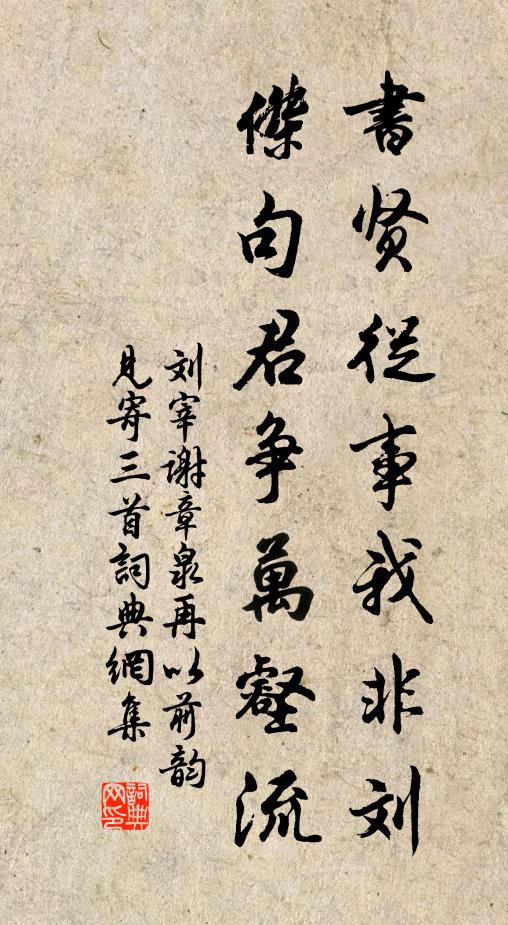 書贤從事我非刘
傑句君争萬壑流
刘宰谢章泉再以前韵
见寄三首詞典網集
詞典网印